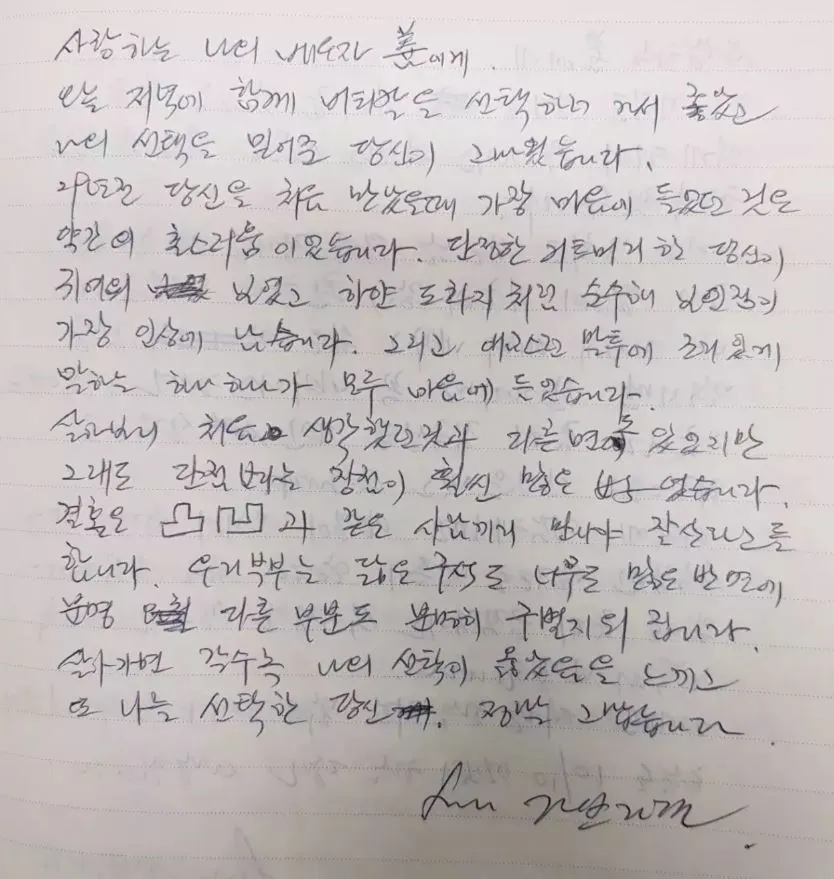 사랑하는 나의 배우자 善에게.
오늘 저녁에 함께 버티칼을 선택하러 가서 좋았고
나의 선택을 믿어준 당신이 고마웠습니다.
당신을 처음 만났을때 가장 마음에 들었던 것은
약간의 촌스러움이었습니다. 단정한 커트머리 한 당신이
귀여워 보였고 하얀 도화지 처럼 순수해 보인점이
가장 인상에 남습니다. 그리고 말투에 조리있게
말하는 하나하나가 모두 마음에 들었습니다.
살다보니 처음 생각했던것과 다른면도 있었지만
그래도 단점 보다는 장점이 훨씬 많은 였습니다.
결혼은 凸 凹 과 같은 사람끼리 만나야 잘산다고들
합니다. 우리부부는 닮은 구석도 너무도 많은 반면에
분명 다른 부분도 분명히 구별지워 집니다.
살아가면 갈수록 나의 선택이 옳았음을 느끼고
또 나를 선택한 당신. 정말 고맙습니다.